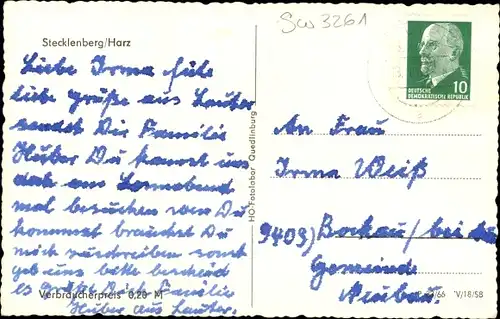 Sw 3261
Stecklenberg/Harz
Liebe Irma
liebe grüße aus Lauter
sendet Dir Familie
Huber Du kannst uns
doch am Sonnabend
mal besuchen wen Du
kommst brauchst Du
nich zuschreiben sonst
geb uns bitte bescheid
es grüßt Dich Familie
Huber aus Lauter.
Verbraucherpreis 0,20 M
HO-Fotolabor Quedlinburg
10
DEUTSCHE
DEMOKRATISCHE REPUBLIK
An Frau
Irma Weiß
9409) Bockau / bei
Gemeinde
Neubau.
V/18/58